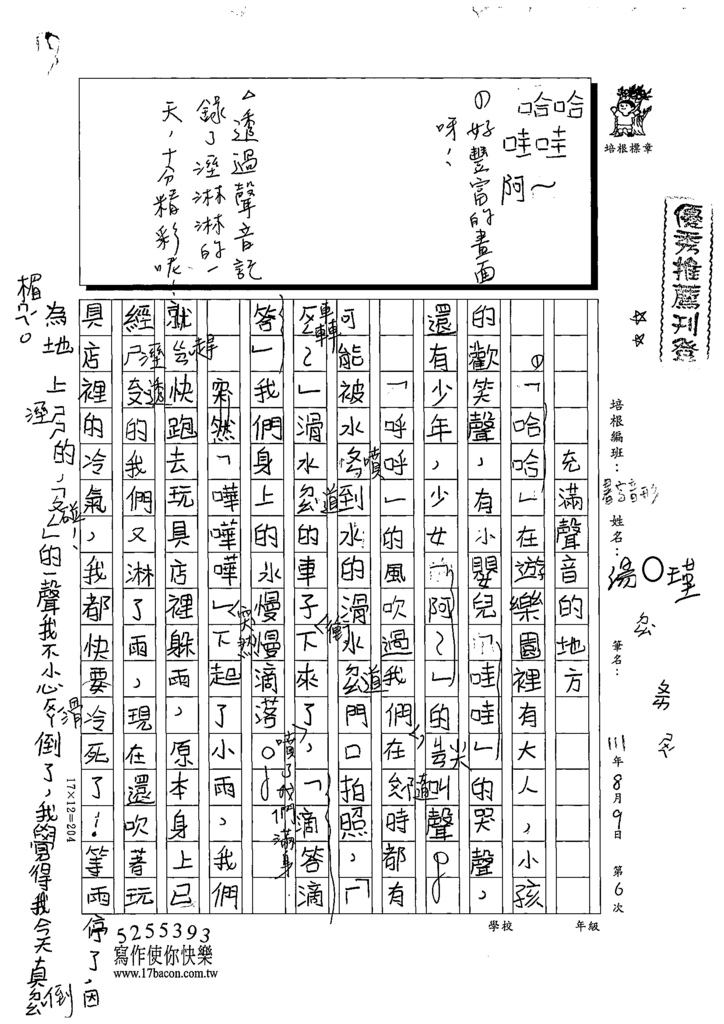 哈哈
哇哇
阿～
の好豐富的畫面
呀！
△透過聲音記
錄了溼淋淋的一
天，十分精彩呢！
培根標章
優秀推薦刊登
培根編班：
姓名：湯○瑾
筆名：
111年8月9日 第6次
學校 年級
充滿聲音的地方
「哈哈」在遊樂園裡有大人，小孩
的歡笑聲，有小嬰兒「哇哇」的哭聲，
還有少年，少女「阿～」的尖叫聲。
「呼呼」的風吹過我們在ㄉㄠ時都有
可能被水ㄆㄣ到水的滑水ㄉㄠ門口拍照，「
ㄓㄨㄢ～」滑水ㄉㄠ的車子下來了，「滴答滴
答」我們身上的水慢慢滴落。
突然「嘩嘩嘩」下起了小雨，我們
就ㄍㄢ快跑去玩具店裡躲雨，原本身上已
經ㄕ透的我們又淋了雨，現在還吹著玩
具店裡的冷氣，我都快要冷死了！等雨停了，因
為地上ㄕ的，「ㄆㄥ」的一聲我不小心ㄏㄨㄚ倒了，我覺得我今天真ㄉㄠ
趕
溼
透
噴
道
轉
道
衝
道
達
突然
噴了我們滿身
碰！
滑
溼
倒
17×12=204
5255393
寫作使你快樂
www.17bacon.com.tw